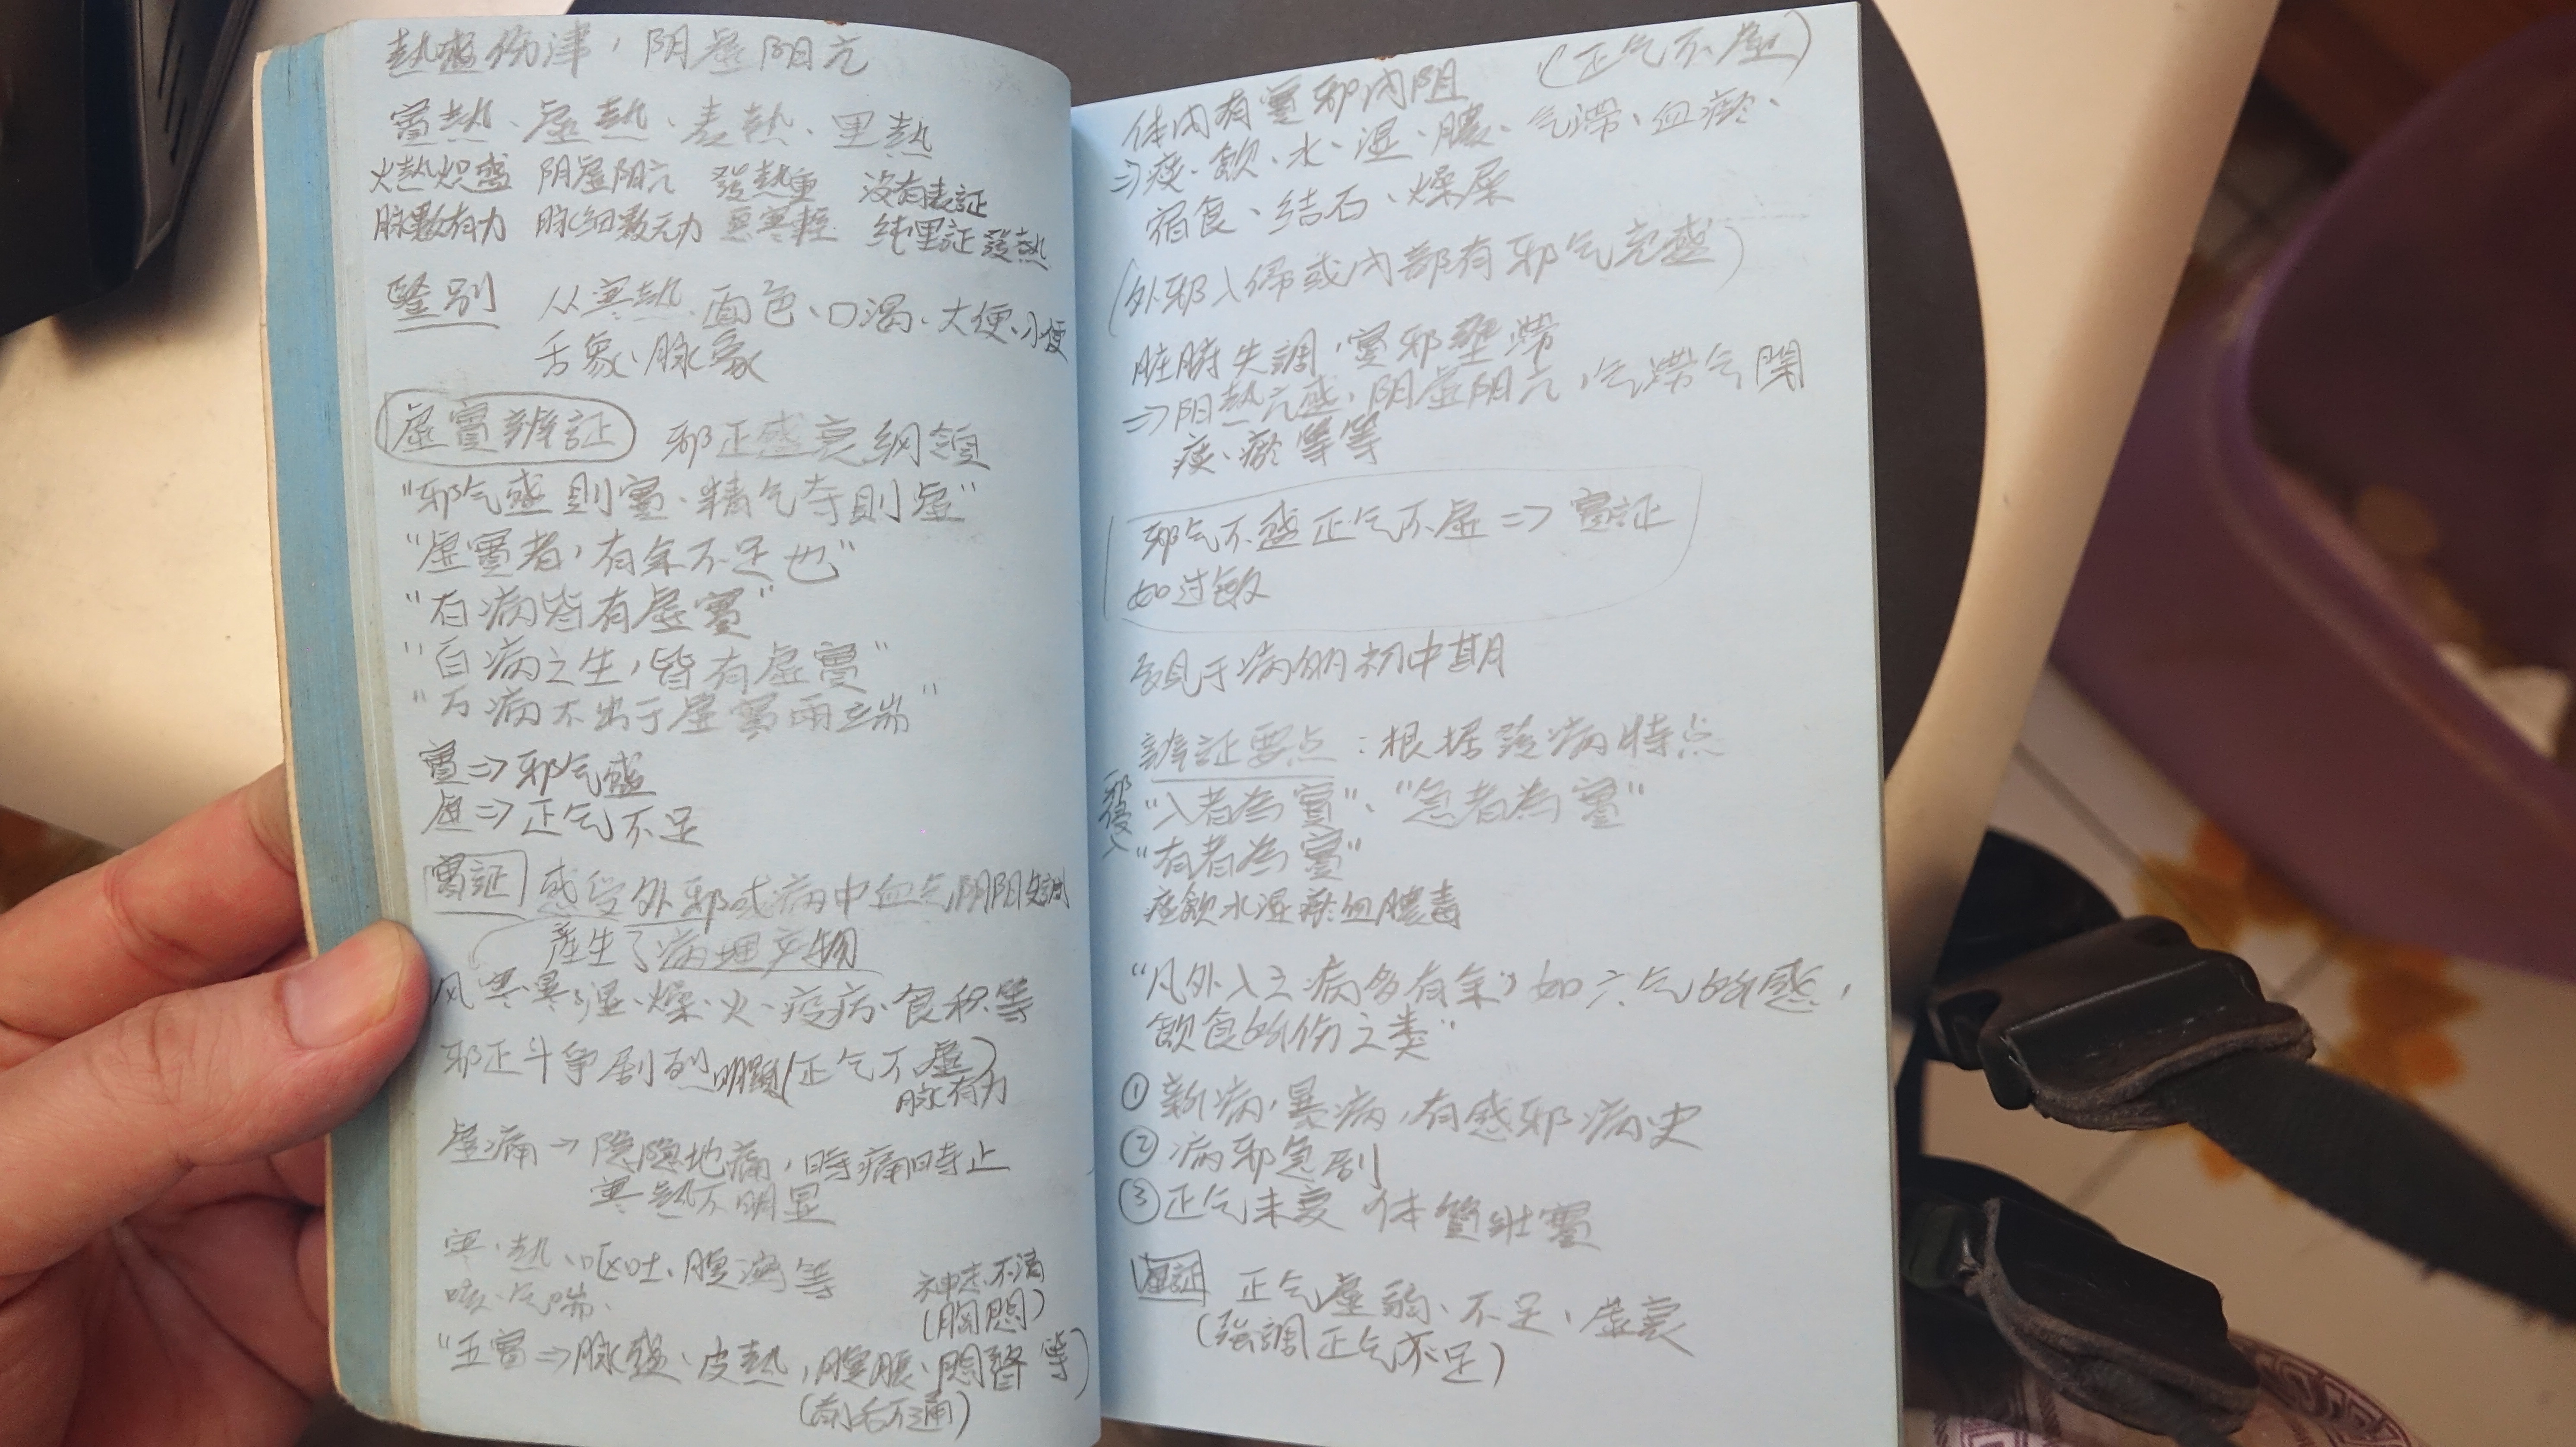 熱盛伤津，阴虛阳亢
實熱、虛熱、表熱、里熱
火熱炽盛 阴虛阳亢 發熱重 没有表証
脉數有力 脉细數无力 惡寒輕 纯里証發熱
鑒别 从寒熱、面色、口渴、大便、小便
舌象、脉象
虛實辨証 邪正盛衰纲領
“邪气盛則實、精气夺則虛”
“虛實者，有余不足也”
“百病皆有虛實”
“百病之生，皆有虛實”
“万病不出于虛實兩端”
實⇒邪气盛
虛⇒正气不足
實証 感受外邪或病中血气阴阳失調
產生了病理产物
风寒暑湿、燥、火、疫疠、食积等
邪正斗争剧烈明顯(正气不虛)
脉有力
虛痛→隐隐地痛，時痛時止
寒熱不明显
寒、熱、呕吐、腹瀉等
咳、气喘、
神志不清
(胸悶)
“五實⇒脉盛、皮熱，腹脹、悶瞀等)
(前后不通)
(正气不虛)
体内有實邪内阻
⇒痰、飲、水、湿、膿、气滞、血瘀、
宿食、结石、燥屎
(外邪入侵或内部有邪气充盛)
脏腑失調，實邪壅滞
⇒阳熱亢盛，阴虛阳亢，气滞气閉
痰、瘀等等
邪气不盛正气不虛⇒實証
如过敏
多見于病的初中期
辨証要点：根据發病特点
邪侵入
“入者為實”、“急者為實”
“有者為實”
痰飲水湿瘀血膿毒
“凡外入之病多有余，如六气所感，
飲食所伤之类”
①新病，暴病，有感邪病史
②病邪急剧
③正气未衰 体質壯實
虛証 正气虛弱、不足、虛衰
(強調正气不足)